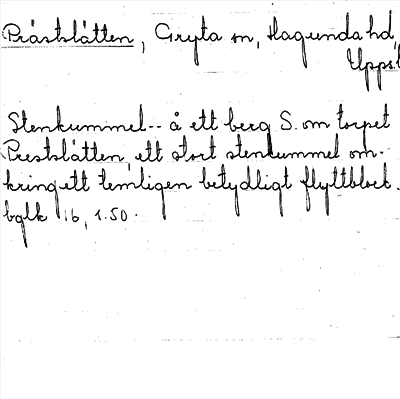 Prästslåtten, Gryta sn, Hagunda hd,
Uppsl
Stenkummel-- å ett berg S. om torpet
Prestslåtten, ett stort stenkummel om-
kring ett temligen betydligt flyttblock.
bglk 16, 1.50.